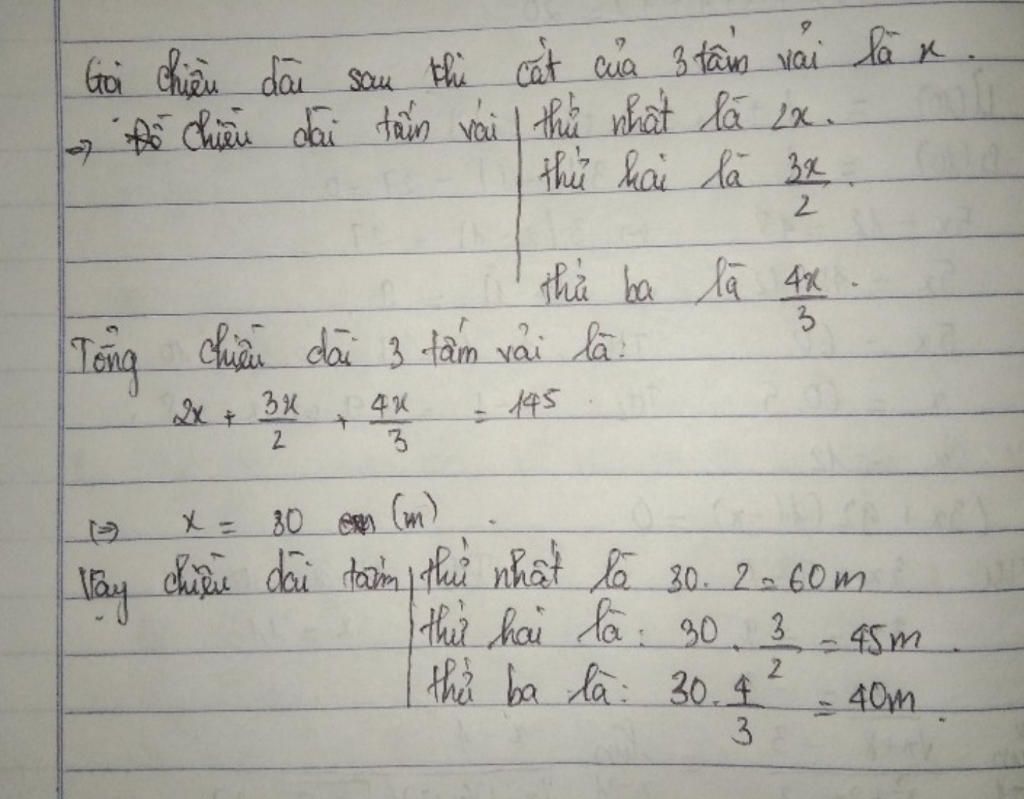 Gọi chiều dài sau khi cắt của 3 tấm vải là x.
=> Chiều dài tấm vải | thứ nhất là 2x.
thứ hai là 3x/2.
thứ ba là 4x/3.
Tổng chiều dài 3 tấm vải là:
2x + 3x/2 + 4x/3 = 145
<=> x = 30 (m).
Vậy chiều dài tấm | thứ nhất là 30. 2 = 60m
thứ hai là: 30. 3/2 = 45m.
thứ ba là: 30. 4/3 = 40m.